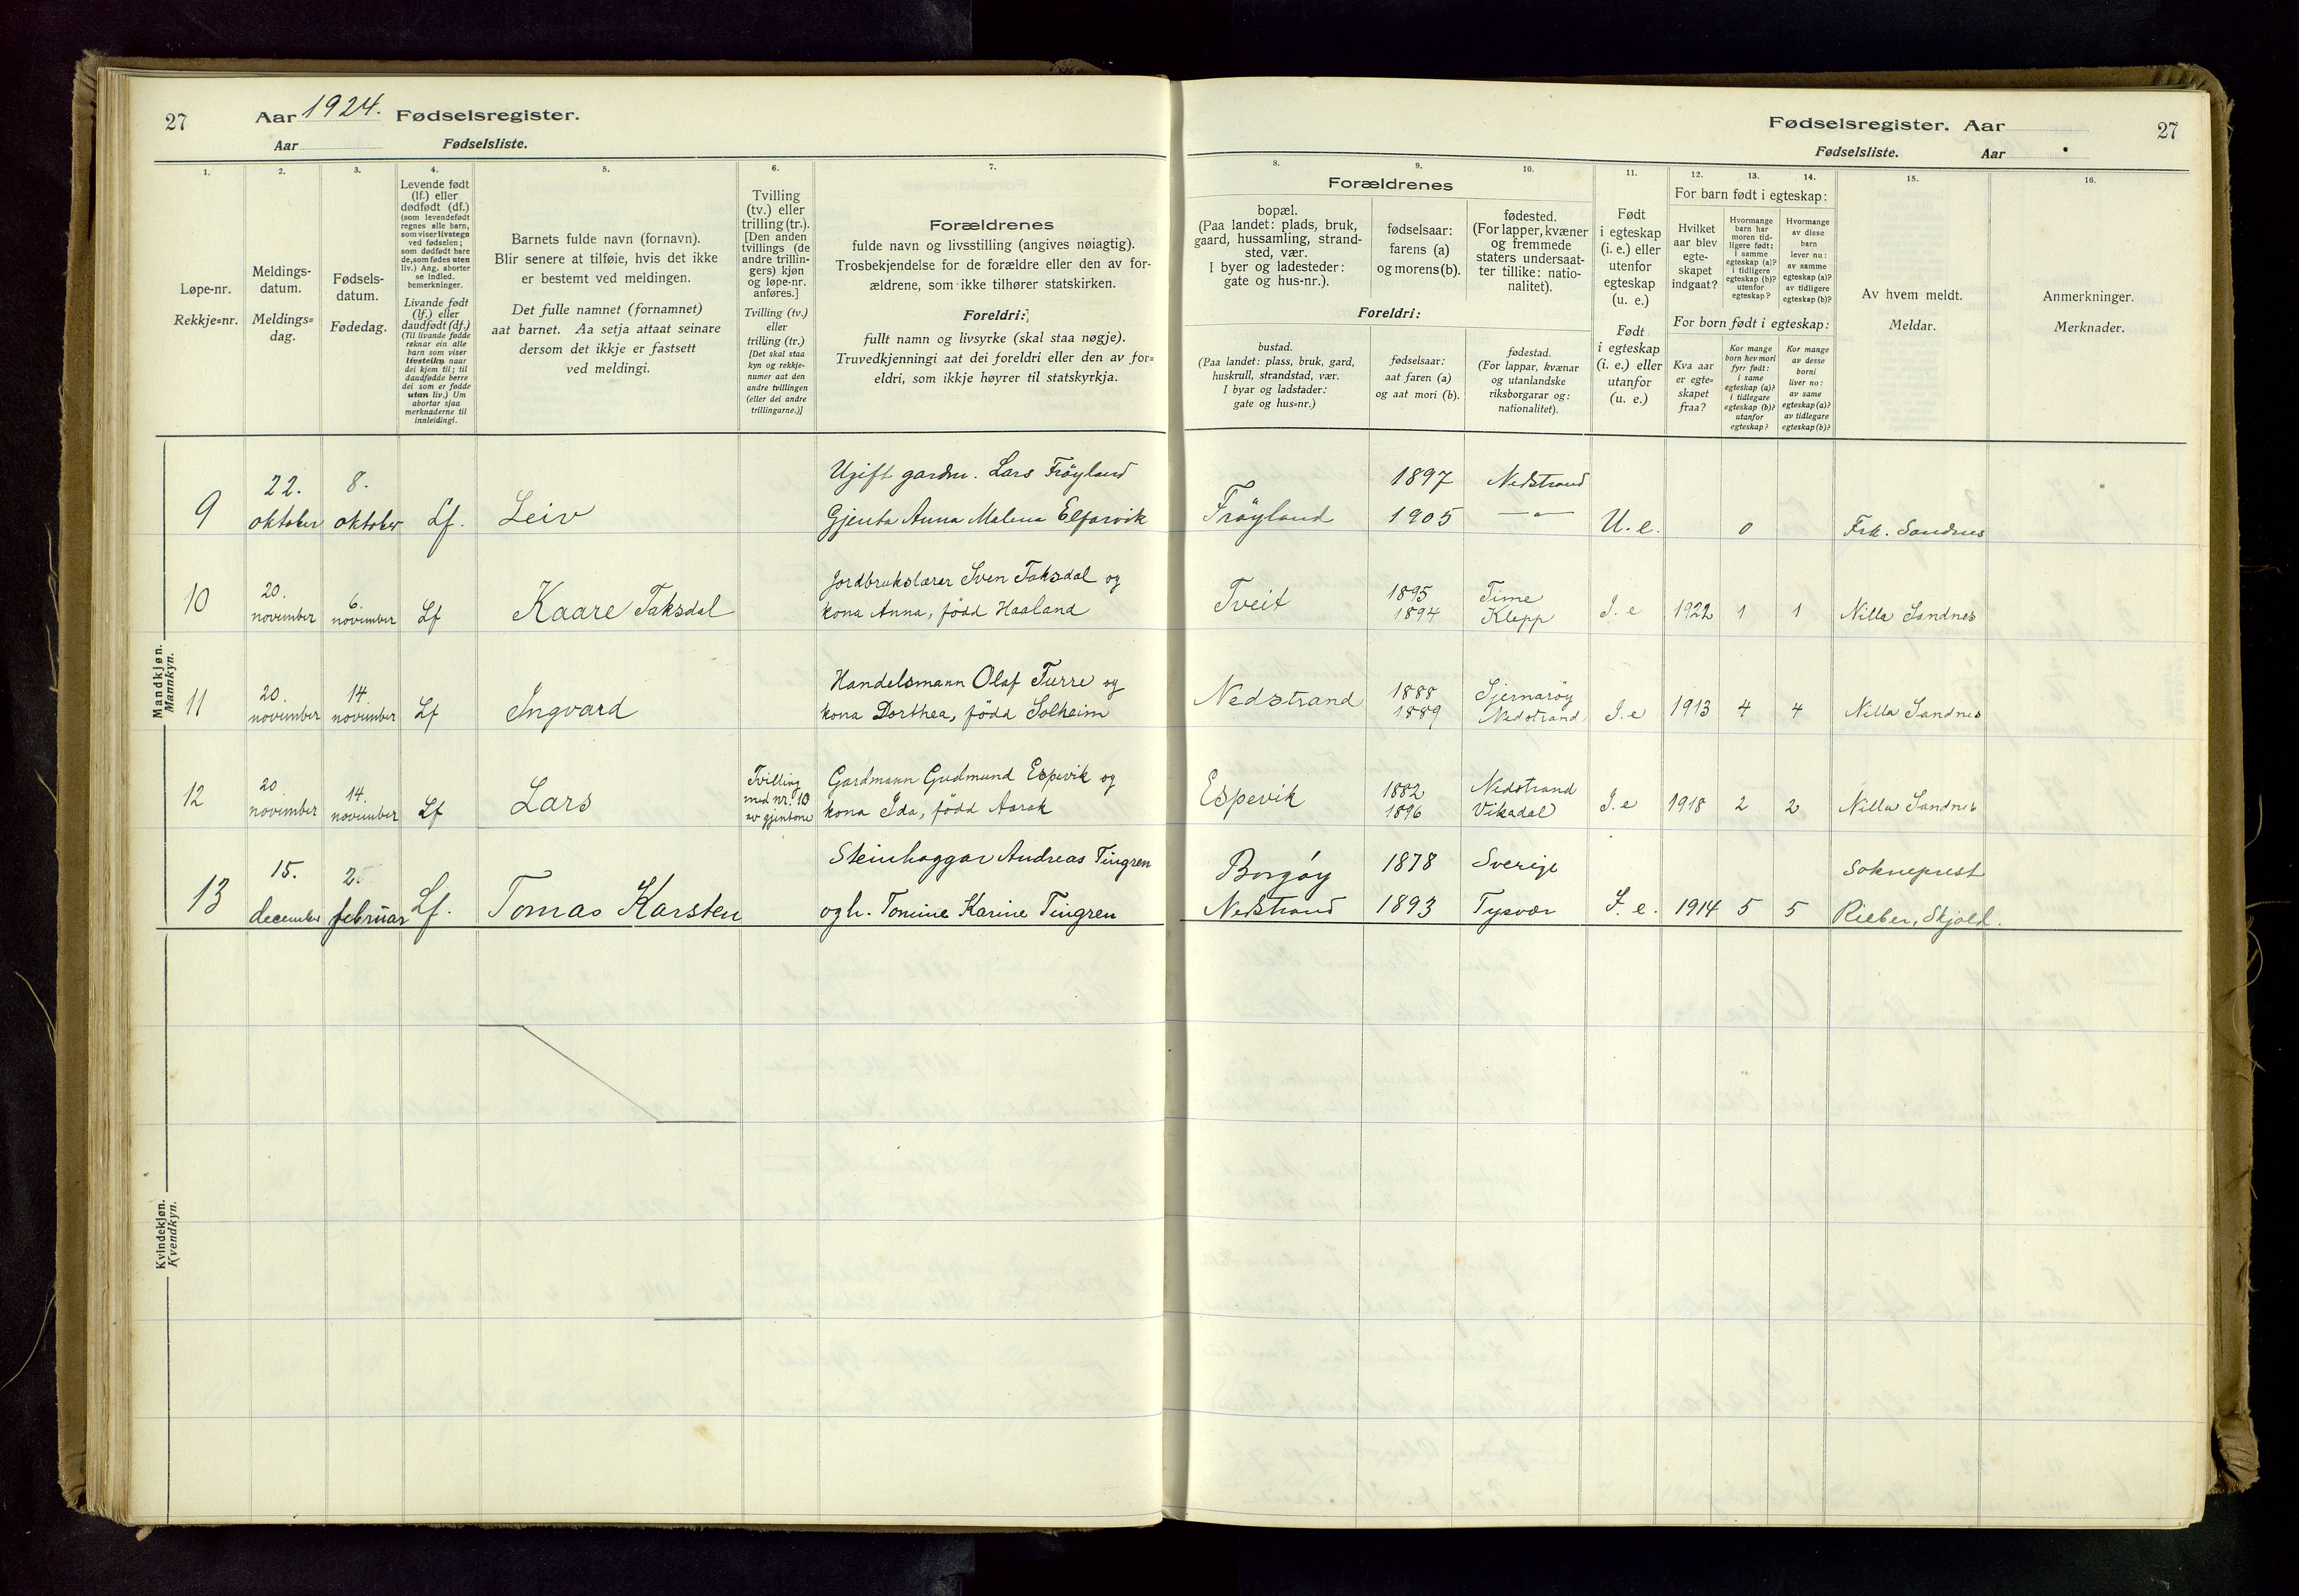 27
Aar 1924. Fødselsregister.
Aar
Fødselsliste.
Fødselsregister. Aar
27
Fødselsliste.
Aar
1.
Løpe-nr.
Rekkje=nr.
2.
Meldings-
datum.
Meldings=
dag.
3.
Fødsels-
datum.
Fødedag.
4.
Levende født
(lf.) eller
dødfødt (df.)
(som levendefødt
regnes alle barn,
som viser livstegn
ved fødselen;
som dødfødt bare
de, som fødes uten
liv.) Ang. aborter
se indled.
bemerkninger.
Livande født
(lf.) eller
daudfødt (df.)
(Til livande fødde
reknar ein alle
barn som viser
livsteikn naar
dei kjem til; til
daudfødde berre
dei som er fødde
utan liv.) Um
abortar sjaa
merknaderne til
innleidingi.
5.
Barnets fulde navn (fornavn).
Blir senere at tilføie, hvis det ikke
er bestemt ved meldingen.
Det fulle namnet (fornamnet)
aat barnet. Aa setja attaat seinare
dersom det ikkje er fastsett
ved meldingi.
6.
Tvilling
(tv.) eller
trilling (tr.).
[Den anden
tvillings (de
andre trillin-
gers) kjøn
og løpe-nr.
anføres.]
Tvilling (tv.)
eller
trilling (tr.)
[Det skal staa
kyn og rekkje-
numer aat den
andre tvillingen
(eller dei andre
trillingarne.)]
7.
Forældrenes
fulde navn og livsstilling (angives nøiagtig).
Trosbekjendelse for de forældre eller den av for-
ældrene, som ikke tilhører statskirken.
Foreldri:
fullt namn og livsyrke (skal staa nøgje).
Truvedkjenningi aat dei foreldri eller den av for=
eldri, som ikkje høyrer til statskyrkja.
Forældrenes
8.
bopæl.
(Paa landet: plads, bruk,
gaard, hussamling, strand-
sted, vær.
I byer og ladesteder:
gate og hus-nr.).
9.
fødselsaar:
farens (a)
og morens (b).
10.
fødested.
(For lapper, kvæner
og fremmede
staters undersaat-
ter tillike: natio-
nalitet).
Foreldri:
bustad.
(Paa landet: plass, bruk, gard,
huskrull, strandstad, vær.
I byar og ladstader:
gate og hus=nr.)
fødselsaar:
aat faren (a)
og aat mori (b).
fødestad.
(For lappar, kvænar
og utanlandske
riksborgarar og:
nationalitet).
11.
Født
i egteskap
(i. e.) eller
utenfor
egteskap
(u. e.)
Født
i egteskap
(i. e.) eller
utanfor
(u. e.)
12. 13. 14.
For barn født i egteskap:
Hvilket
aar blev
egte-
skapet
indgaat?
Hvormange
barn har
moren tid-
ligere født:
i samme
egteskap (a)?
i tidligere
egteskap (b)?
utenfor
egteskap?
Hvormange
av disse
barn
lever nu:
av samme
egteskap (a)?
av tidligere
egteskap (b)?
For born født i egteskap:
Kva aar
er egte=
skapet
fraa?
Kor mange
born hev mori
fyrr født:
i same
egteskap (a)?
i tidlegare
egteskap (b)?
utanfor
egteskap?
Kor mange
av desse
borni
liver no:
av same
egteskap (a)?
av tidlegare
egteskap (b)?
15.
Av hvem meldt.
Meldar.
16.
Anmerkninger.
Merknader.
Mandkjøn.
Mannkyn.
22. 8. Ugift gardm. Lars Frøyland 1897 Nedstrand
9 oktober oktober Lf. Leiv Gjenta Anna Malena Elfarvik Frøyland 1905 —"— U. e. 0 Frk. Sandnes
20. 6. Jordbrukslærer Sven Taksdal og 1895 Time
10 november november Lf Kaare Taksdal kona Anna, född Haaland Tveit 1894 Klepp I. e 1922 1 1 Nilla Sandnes
20. 14. Handelsmann Olaf Turre og 1888 Sjernarøy
11 november november Lf Ingvard kona Dorthea, född Solheim Nedstrand 1889 Nedstrand I. e 1913 4 4 Nilla Sandnes
20 14. Tvilling Gardmann Gudmund Espevik og 1882 Nedstrand
12 november november Lf Lars med nr. 10 av gjentone kona Ida, född Aarak Espevik 1896 Vikadal I. e 1918 2 2 Nilla Sandnes
15. 2. Steinhoggar Andreas Tingren Borgøy 1878 Sverige Sokneprest
13 december februar Lf. Tomas Karsten og h. Tomine Karine Tingren Nedstrand 1893 Tysvær I. e. 1914 5 5 Rieber, Skjold.
Kvindekjøn.
Kvendkyn.